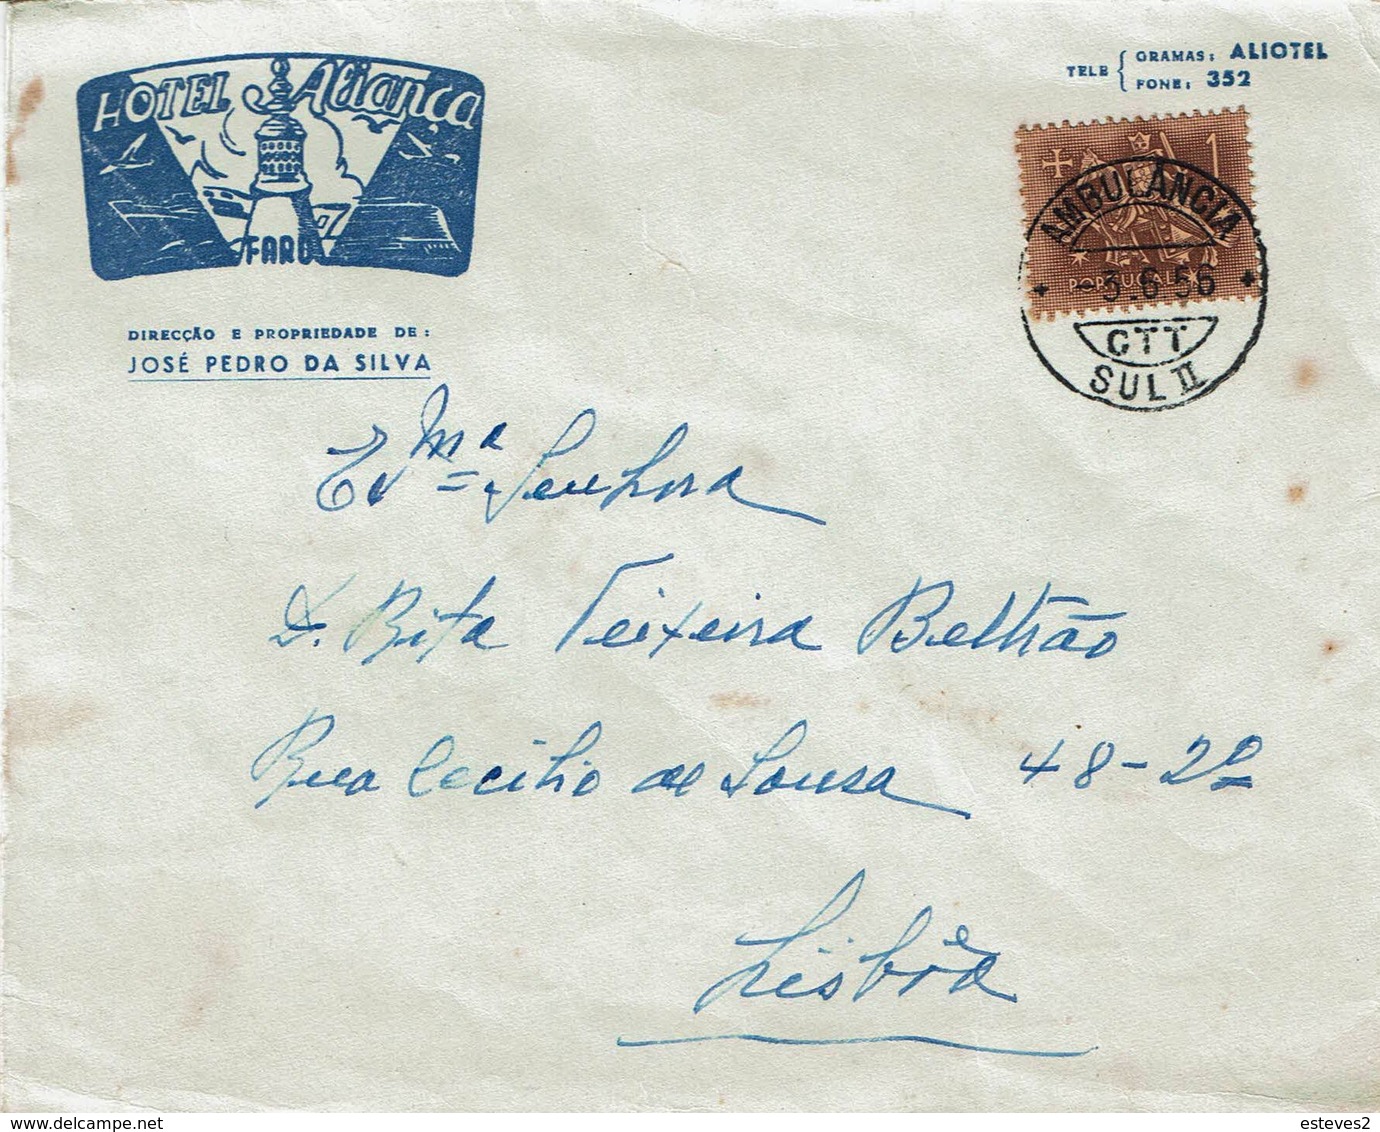 HOTEL Aliança
FARO
DIRECÇÃO E PROPRIEDADE DE:
JOSÉ PEDRO DA SILVA
TELE { GRAMAS: ALIOTEL
FONE: 352
1
PORTUGAL
AMBULÂNCIA
-3.6.56
CTT
SUL II
Exmª Senhora
D. Rita Teixeira Beltrão
Rua Cecilio de Sousa 48-2º
Lisbôa
delcampe.net
esteves2